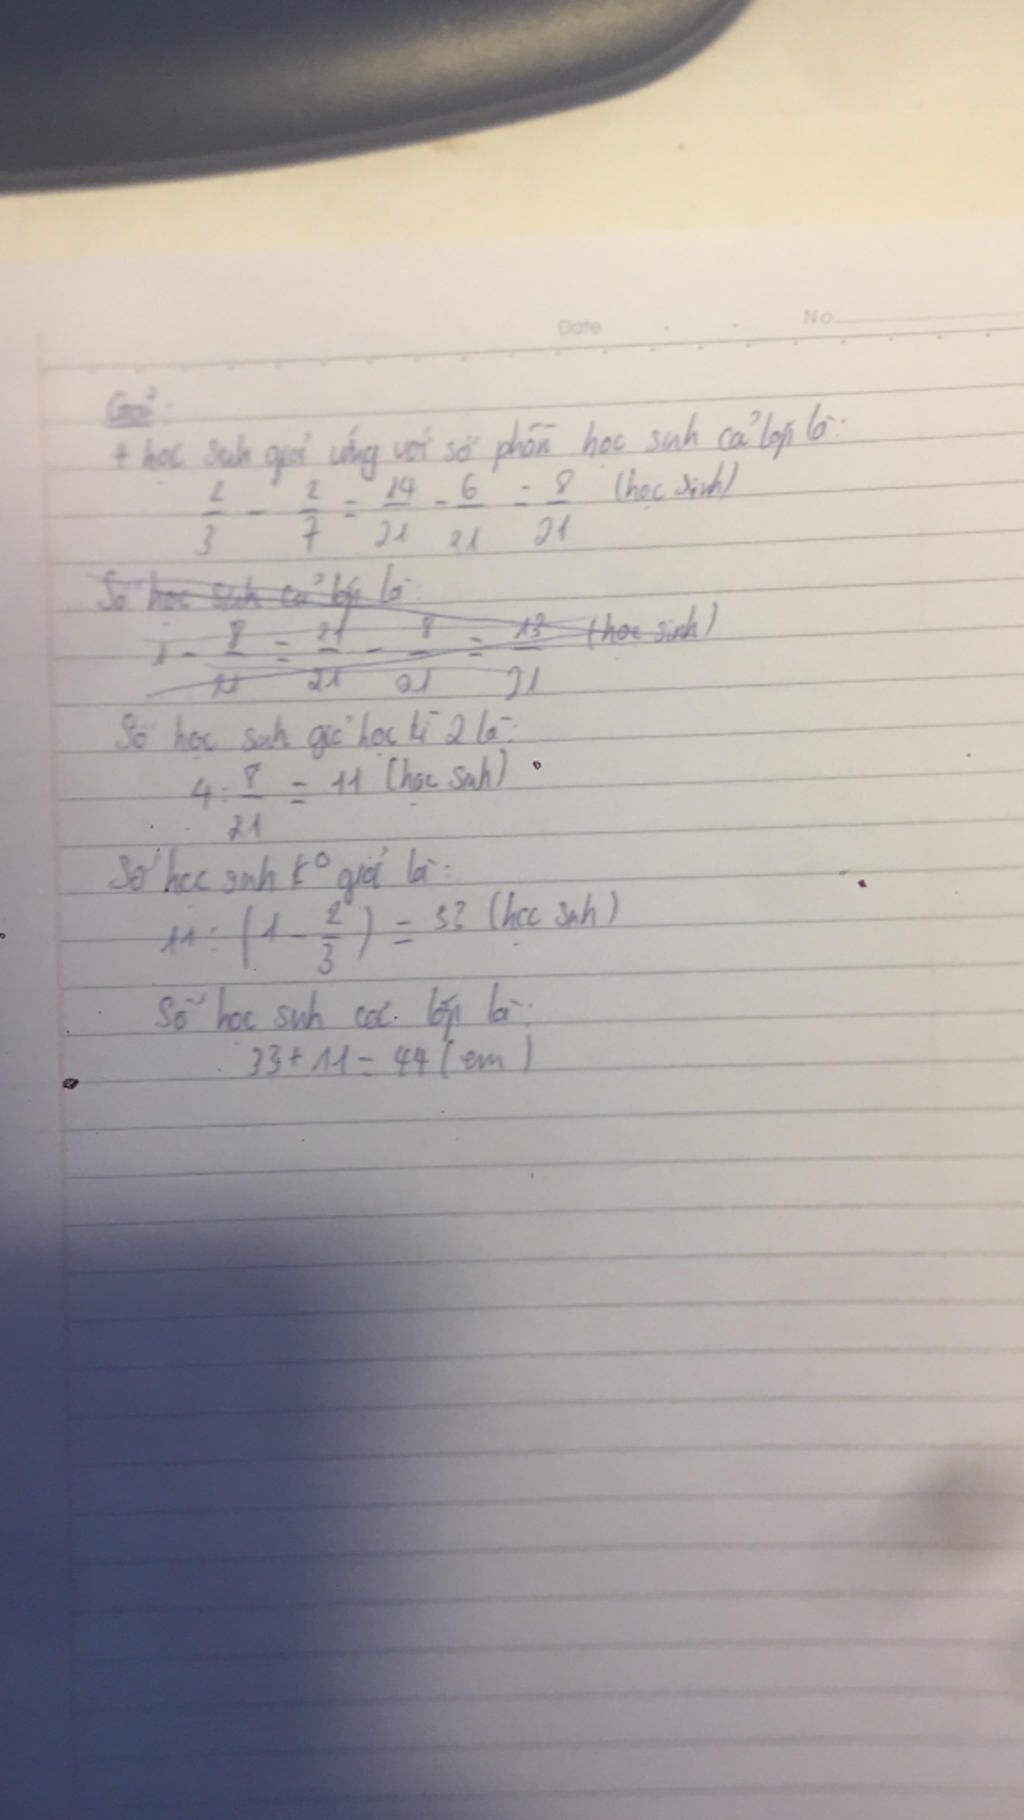 Date No
Giải:
+ học sinh giỏi ứng với số phần học sinh cả lớp là:
2/3 - 2/7 = 14/21 - 6/21 = 8/21 (học sinh)
Số học sinh cả lớp là:
1 - 8/21 = 21/21 - 8/21 = 13/21 (học sinh)
Số học sinh giỏi học kì 2 là:
4 : 8/21 = 11 (học sinh)
Số học sinh k° giỏi là:
11 : (1 - 2/3) = 33 (học sinh)
Số học sinh lớp là:
33 + 11 = 44 (em)